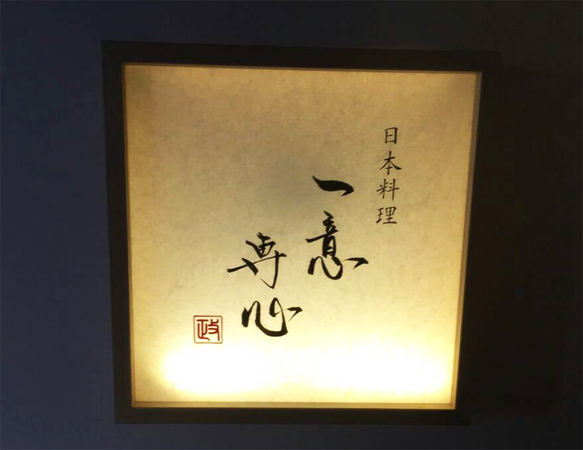 日本料理
一意
専心
政